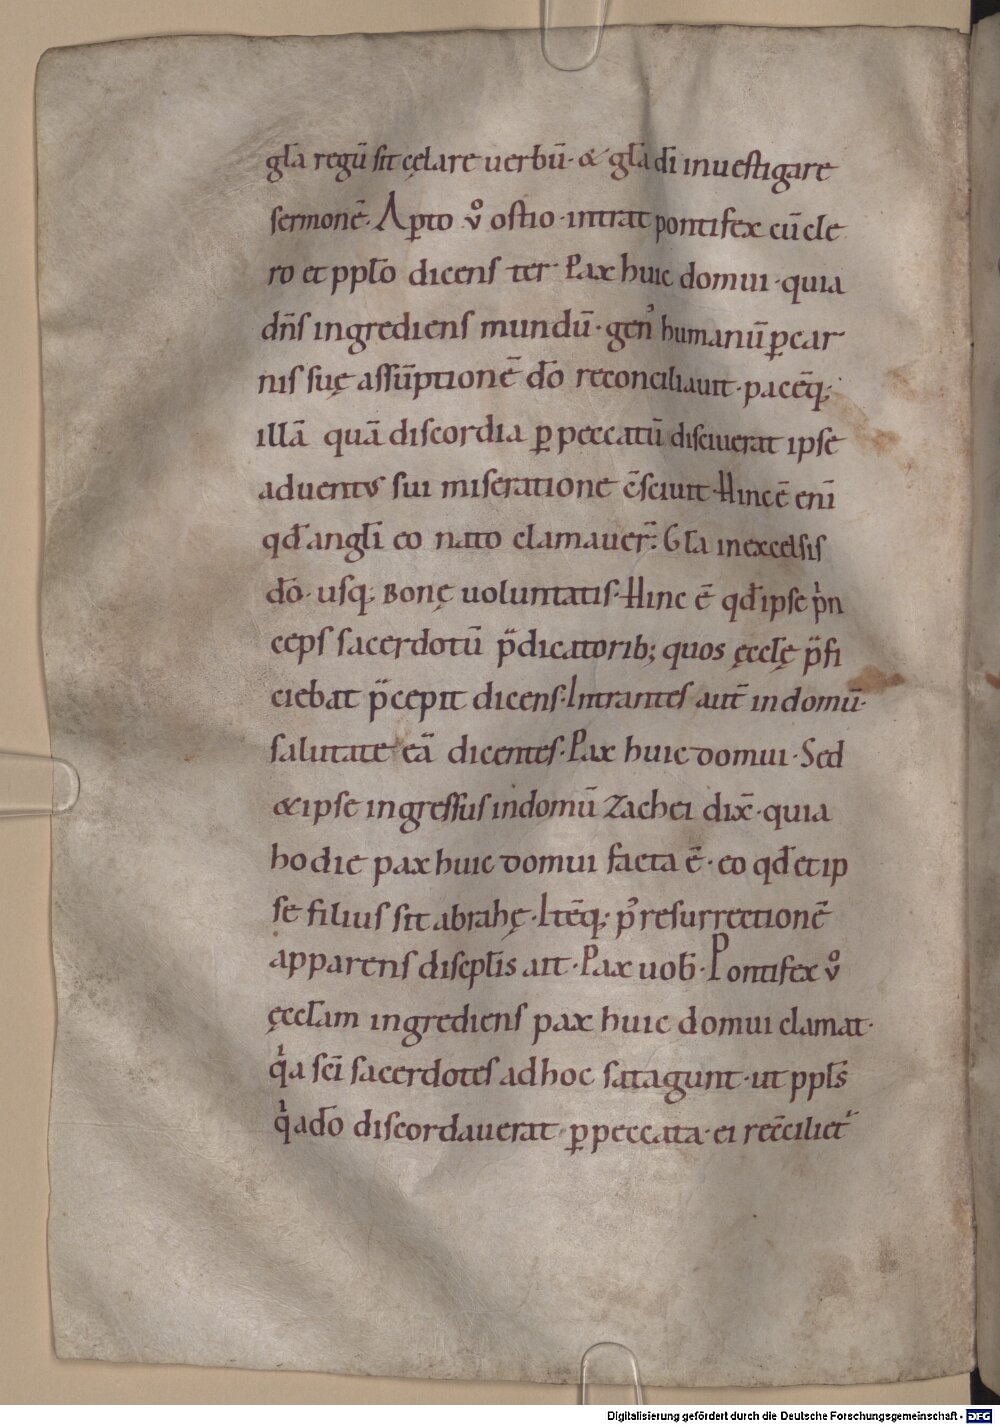 gl̄a regū sit cęlare uerbū· & gl̄a dī inuestigare
sermonē· Aꝑto v̊ ostio· intrat pontifex cū cle
ro et ppl̄o dicens ter· Pax huic domui· quia
dn̄s ingrediens mundū· gen᾿ humanū ꝑ car
nis suę assūptionē dō reconciliauit· pacēq;
illā quā discordia ꝑ peccatū disciuerat ipse
aduentus sui miseratione c̄sciuit· Hinc ē eni̅
qd̄ angli̅ eo nato clamauer̄· Gl̄a in excelsis
dō· usq; bonę uoluntatis· Hinc ē qd̄ ipse pͥn
ceps sacerdotū p̄dicatorib; quos ęccl̄ę p̄fi
ciebat p̄cepit dicens· Intrantes aut̄ in domū·
salutate eā dicentes· Pax huic domui· Sed
& ipse ingressus in domū Zachei dix̄· quia
hodie pax huic domui facta ē· eo qd̄ et ip
se filius sit abrahę· Itēq; p᾿ resurrectionē
apparens discipl̄is ait· Pax uob̄· Pontifex v̊
ęccl̄am ingrediens pax huic domui clamat·
qͥa sci̅ sacerdotes ad hoc satagunt· ut ppl̄s
qͥ a dō discordauerat· ꝑ peccata· ei rec̄ciliet᾿
Digitalisierung gefördert durch die Deutsche Forschungsgemeinschaft - DFG